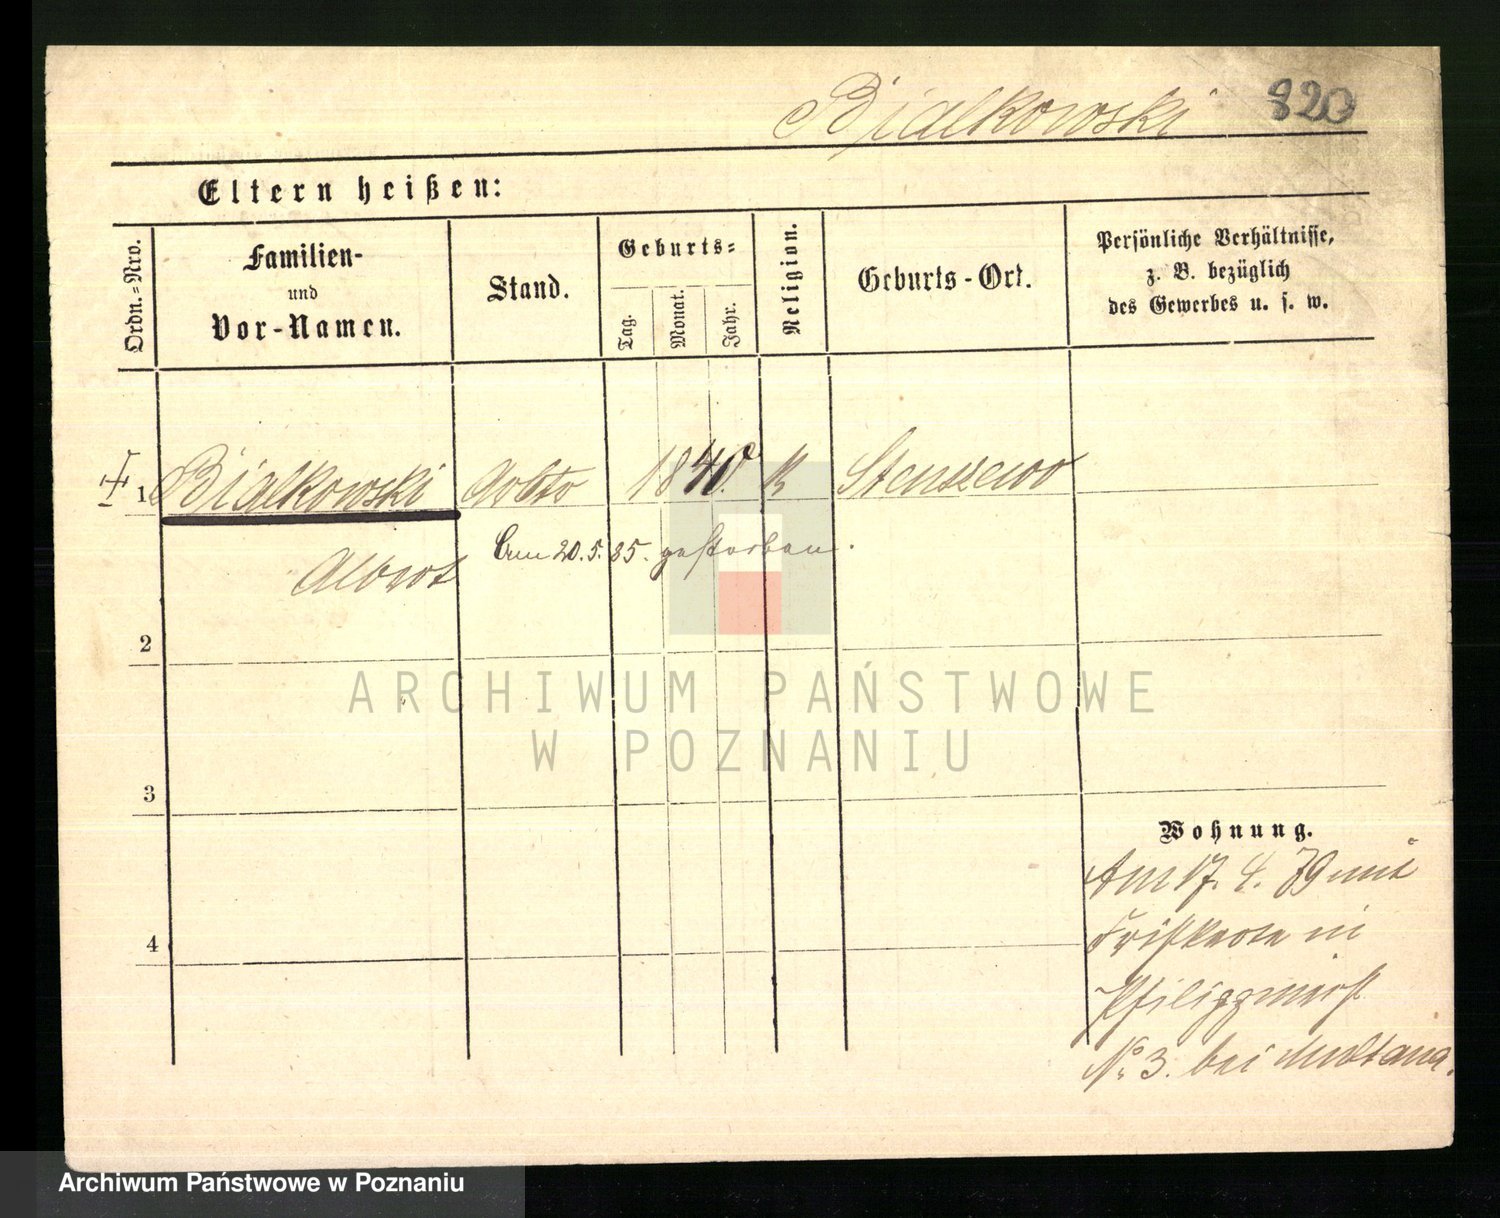 Bialkowski 820
Eltern heißen:
Ordn.-Nro.
Familien-
und
Vor-Namen.
Stand.
Geburts-
Tag.
Monat.
Jahr.
Religion.
Geburts-Ort.
Persönliche Verhältnisse,
z. B. bezüglich
des Gewerbes u. s. w.
1 Bialkowski 1840. K Stenszewo
Albert
am 20.5.85. gestorben.
2
3
4
Wohnung.
Am 17. 4. 79 mit
in
No 3. bei
ARCHIWUM PAŃSTWOWE
W POZNANIU
Archiwum Państwowe w Poznaniu